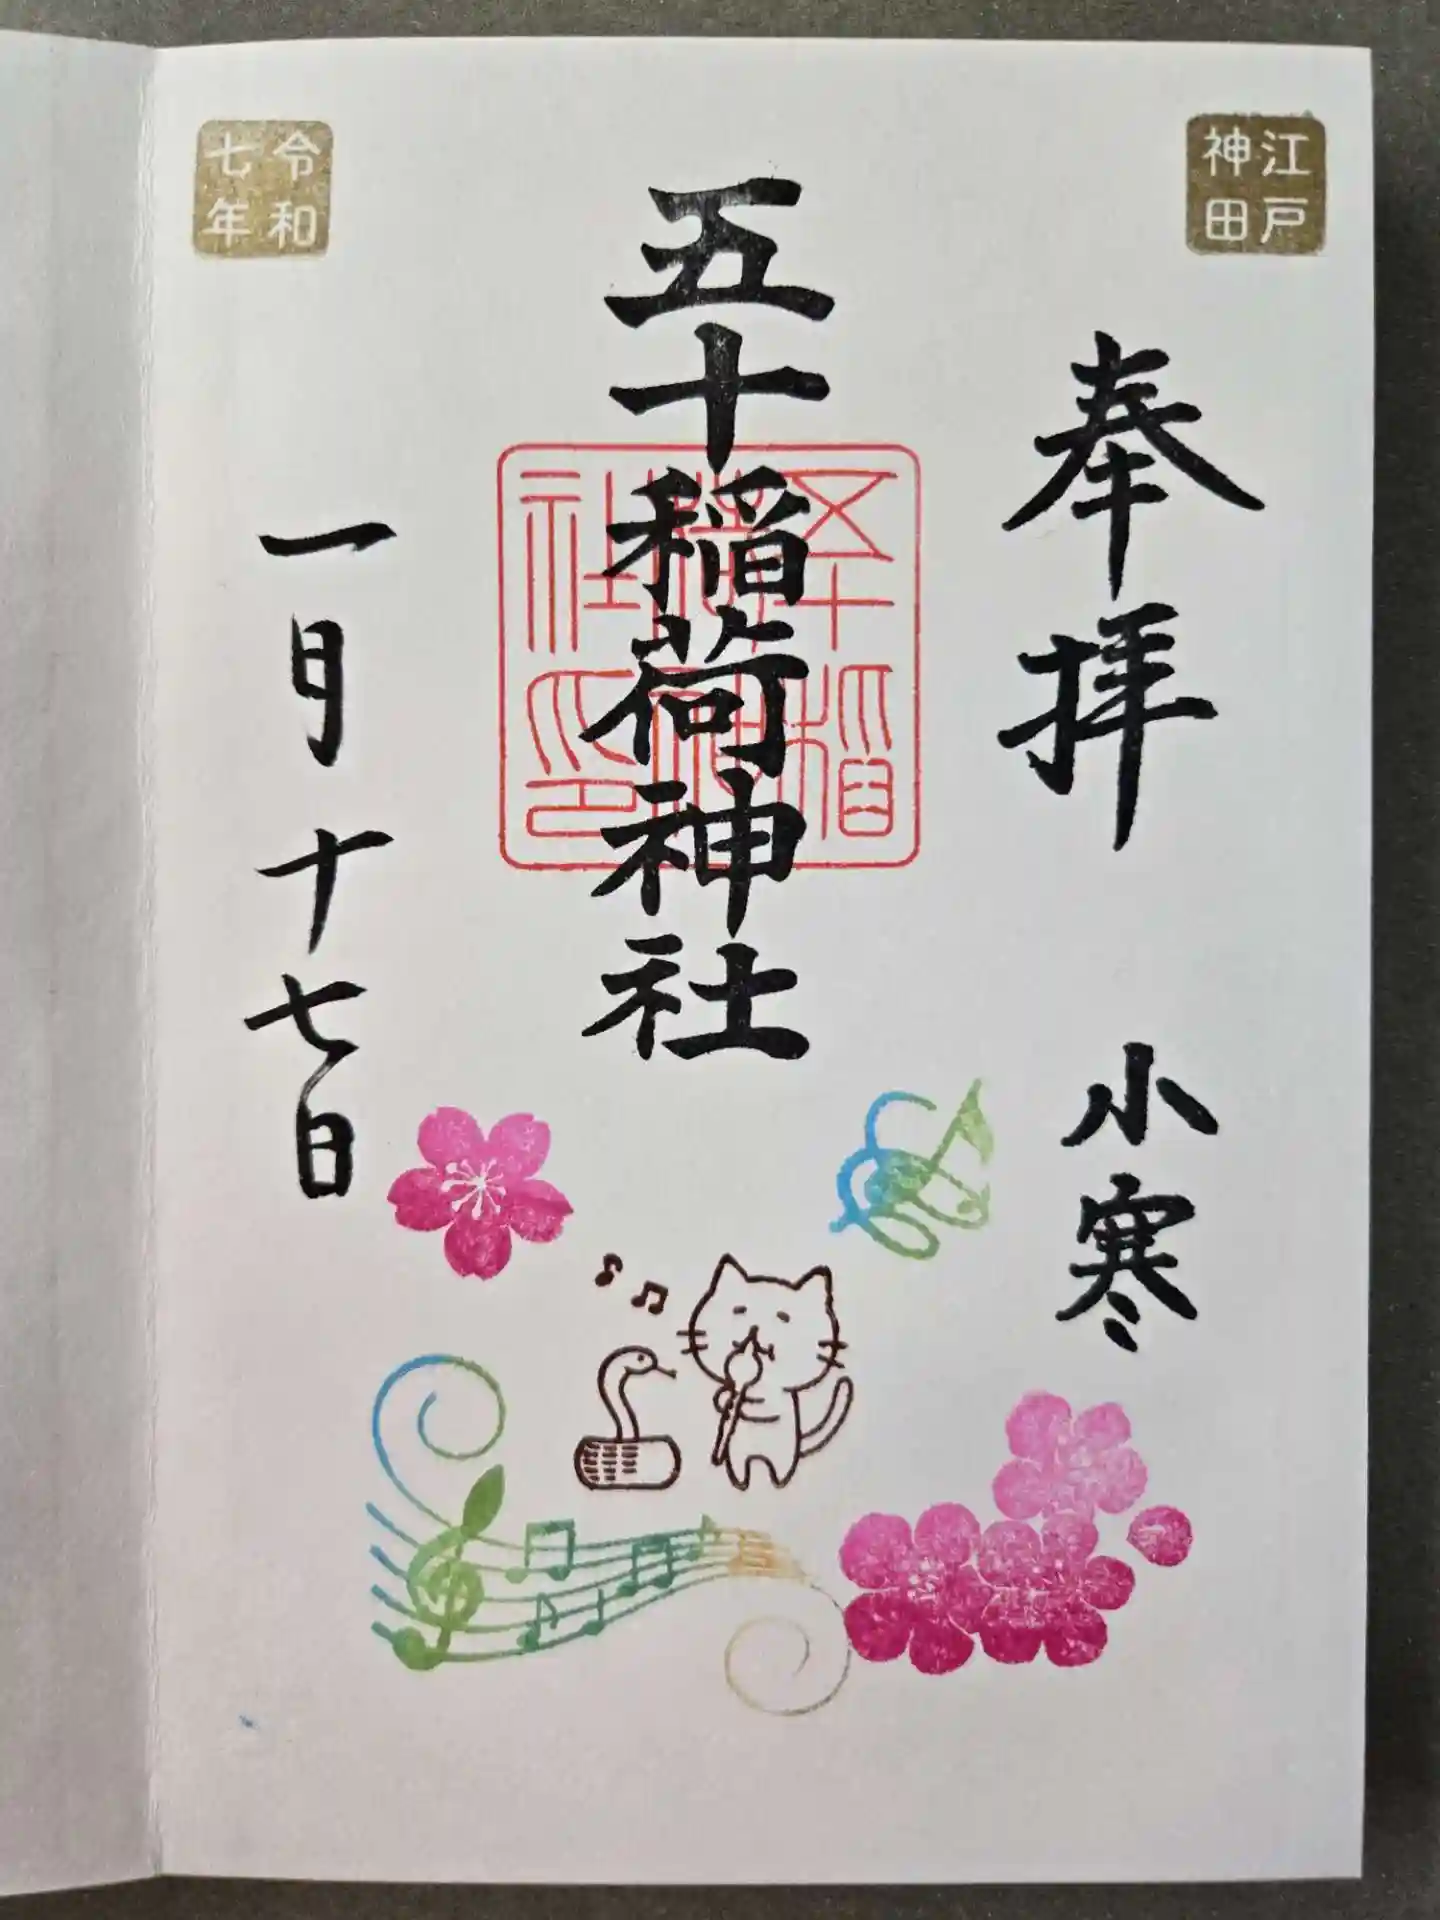 江戸
神田
奉拝
小寒
五十稲荷神社
五十稲
荷神
社印
令和
七年
一月十七日